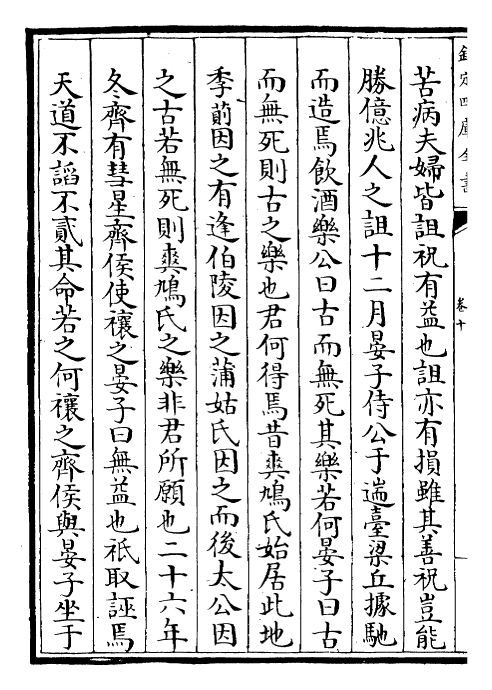 欽定四庫全書
卷十
苦病夫婦皆詛祝有益也詛亦有損雖其善祝豈能
勝億兆人之詛十二月晏子侍公于遄臺梁丘據馳
而造焉飲酒樂公曰古而無死其樂若何晏子曰古
而無死則古之樂也君何得焉昔爽鳩氏始居此地
季萴因之有逢伯陵因之蒲姑氏因之而後太公因
之古若無死則爽鳩氏之樂非君所願也二十六年
冬齊有彗星齊侯使禳之晏子曰無益也祇取誣焉
天道不謟不貳其命若之何禳之齊侯與晏子坐于